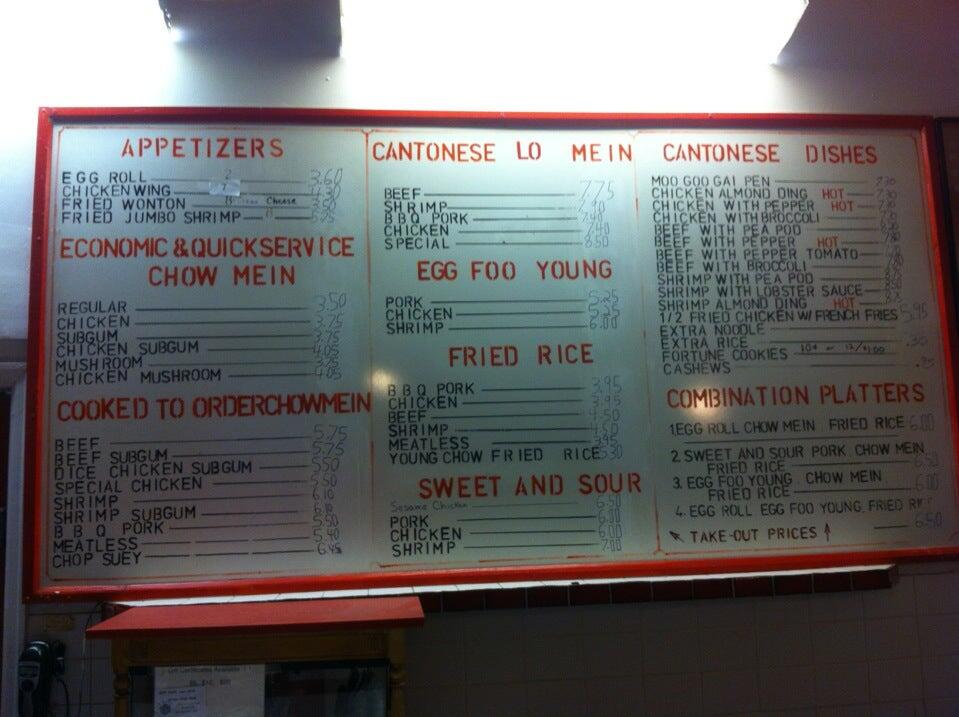 APPETIZERS
EGG ROLL 2 3.60
CHICKEN WING
FRIED WONTON 8 Cheese
FRIED JUMBO SHRIMP 8
ECONOMIC & QUICK SERVICE
CHOW MEIN
REGULAR 3.50
CHICKEN 3.75
SUBGUM 3.75
CHICKEN SUBGUM 4.05
MUSHROOM
CHICKEN MUSHROOM
COOKED TO ORDER CHOW MEIN
BEEF 5.75
BEEF SUBGUM 5.75
DICE CHICKEN SUBGUM 5.50
SPECIAL CHICKEN 5.50
SHRIMP 6.10
SHRIMP SUBGUM 6.10
B B Q PORK 5.50
MEATLESS 5.40
CHOP SUEY 6.45
CANTONESE LO MEIN
BEEF 7.75
SHRIMP
B B Q PORK 7.40
CHICKEN 7.40
SPECIAL 8.50
EGG FOO YOUNG
PORK 5.25
CHICKEN 5.25
SHRIMP 6.00
FRIED RICE
B B Q PORK 3.95
CHICKEN 3.95
BEEF 4.50
SHRIMP 4.50
MEATLESS 3.95
YOUNG CHOW FRIED RICE 5.30
SWEET AND SOUR
Sesame Chicken 6.50
PORK 6.00
CHICKEN 6.00
SHRIMP 7.00
CANTONESE DISHES
MOO GOO GAI PEN 7.30
CHICKEN ALMOND DING HOT
CHICKEN WITH PEPPER HOT
CHICKEN WITH BROCCOLI
BEEF WITH PEA POD
BEEF WITH PEPPER HOT
BEEF WITH PEPPER TOMATO
BEEF WITH BROCCOLI
SHRIMP WITH PEA POD
SHRIMP WITH LOBSTER SAUCE
SHRIMP ALMOND DING HOT
1/2 FRIED CHICKEN W/ FRENCH FRIES 5.95
EXTRA NOODLE
EXTRA RICE .30
FORTUNE COOKIES 10¢ or 12/$1.00
CASHEWS .75
COMBINATION PLATTERS
1. EGG ROLL CHOW MEIN FRIED RICE 6.00
2. SWEET AND SOUR PORK CHOW MEIN
FRIED RICE 6.50
3. EGG FOO YOUNG CHOW MEIN
FRIED RICE 6.00
4. EGG ROLL EGG FOO YOUNG FRIED RICE
6.50
TAKE-OUT PRICES
Gift Certificates Available